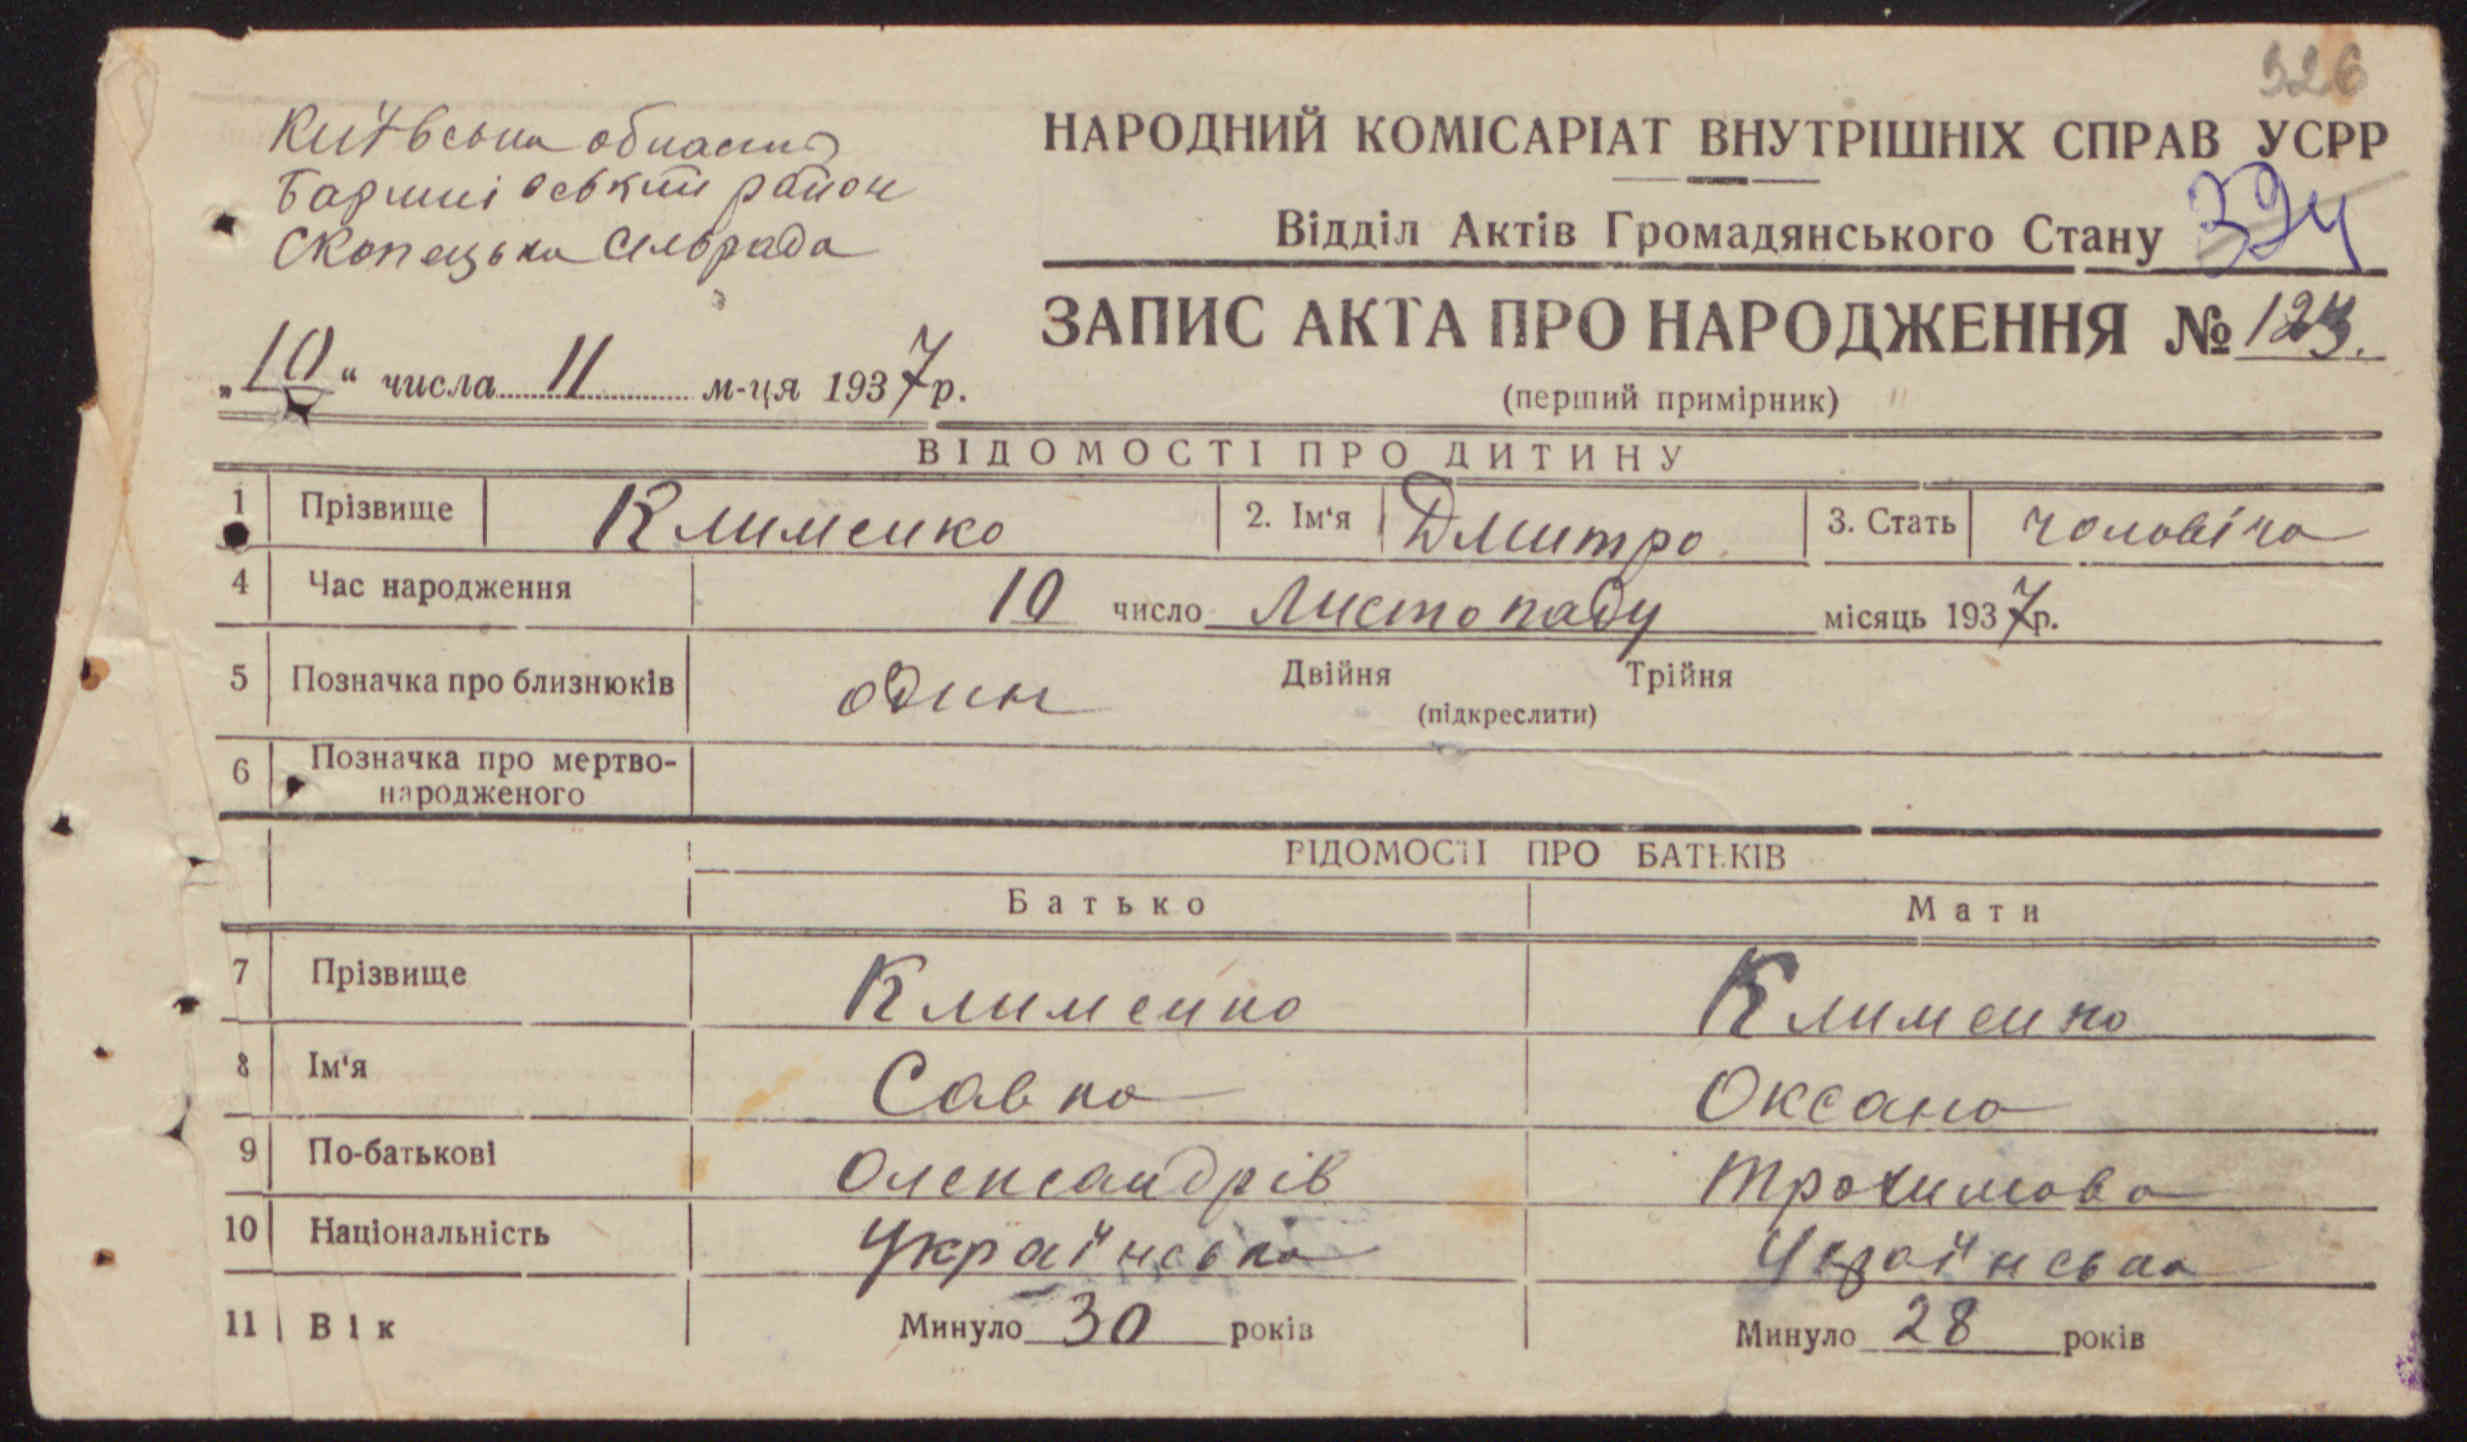 326
Київська область
Баришівський район
Скопецька сільрада
НАРОДНИЙ КОМІСАРІАТ ВНУТРІШНІХ СПРАВ УСРР
Відділ Актів Громадянського Стану
ЗАПИС АКТА ПРО НАРОДЖЕННЯ №
„10“ числа 11 м-ця 1937р.
(перший примірник)
ВІДОМОСТІ ПРО ДИТИНУ
1 Прізвище Клименко 2. Ім'я Дмитро 3. Стать чоловіча
4 Час народження 10 число Листопаду місяць 1937р.
5 Позначка про близнюків один Двійня Трійня
(підкреслити)
6 Позначка про мертво-
народженого
ВІДОМОСТІ ПРО БАТЬКІВ
Батько Мати
7 Прізвище Клименко Клименко
8 Ім'я Савка Оксана
9 По-батькові Олександрів Трохимова
10 Національність Українська Українська
11 Вік Минуло 30 років Минуло 28 років